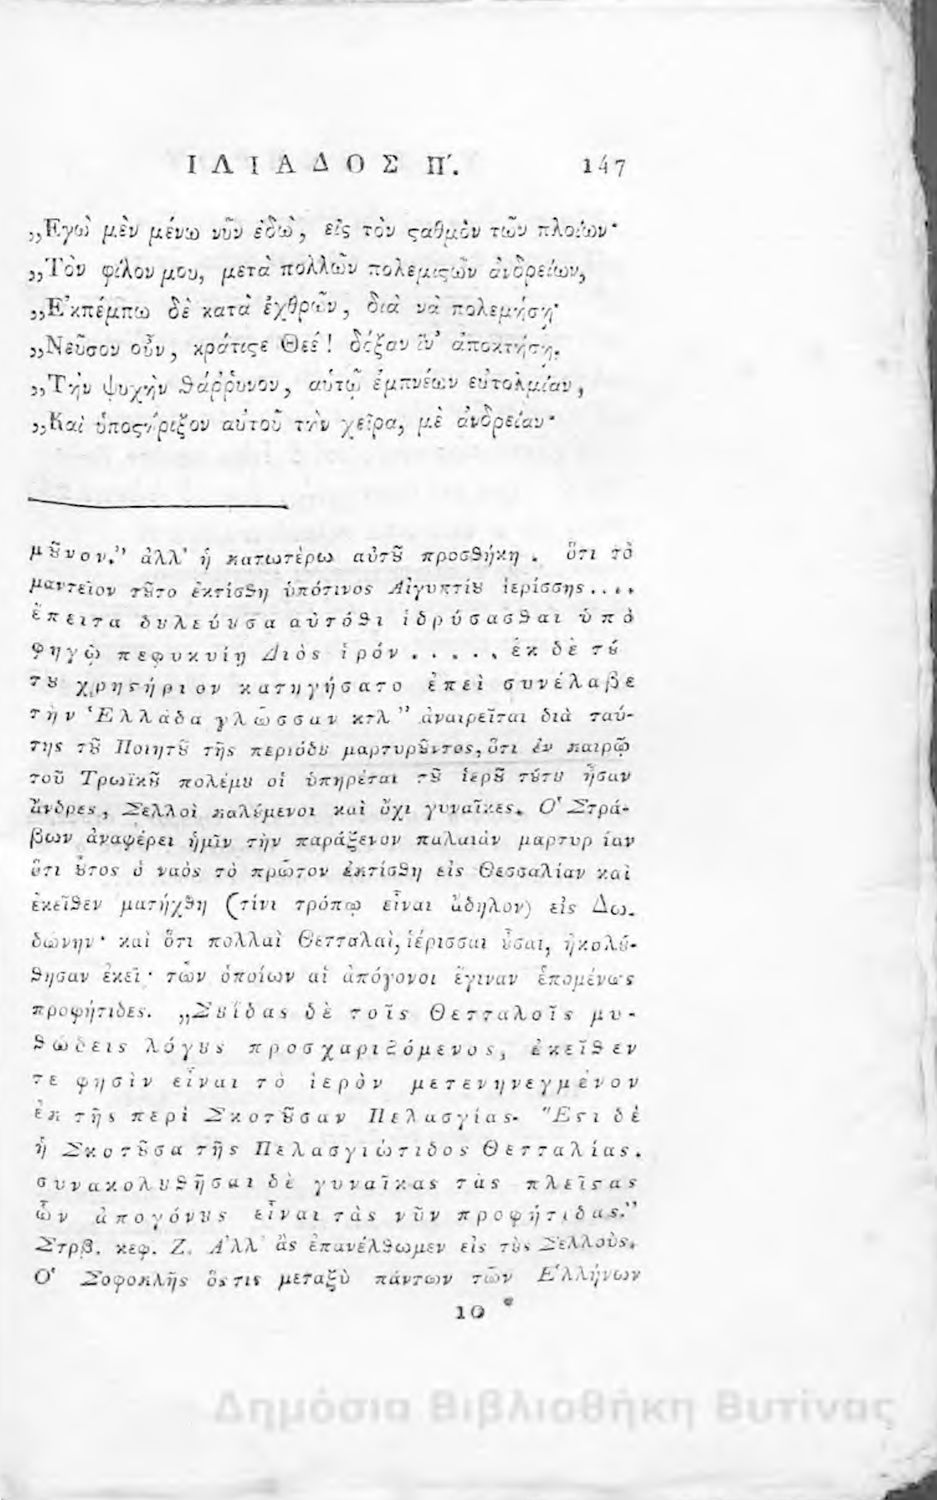 ΙΛΙΑΔΟΣ Π'. 147
„Εγὼ μὲν μένω νῦν ἐδὼ, εἰς τὸν ϛαθμὸν τῶν πλοίων·
„Τὸν φίλον μου, μετὰ πολλῶν πολεμιϛῶν ἀνδρείων,
„Ἐκπέμπω δὲ κατὰ ἐχθρῶν, διὰ νὰ πολεμήσῃ·
„Νεῦσον οὖν, κράτιϛε Θεέ! δόξαν ἵν' ἀποκτήσῃ.
„Τὴν ψυχὴν θάῤῥυνον, αὐτῷ ἐμπνέων εὐτολμίαν,
„Καὶ ὑποϛήριξον αὐτοῦ τὴν χεῖρα, μὲ ἀνδρείαν·
μȣ͂νον." ἀλλ' ἡ κατωτέρω αὐτȣ͂ προσθήκη. ὅτι τὸ
μαντεῖον τȣ͂το ἐκτίσθη ὑπότινος Αἰγυπτίȣ ἱερίσσης....
ἔπειτα δȣλεύȣσα αὐτόθι ἱδρύσασθαι ὑπὸ
φηγῷ πεφυκυίῃ Διὸς ἱρόν ..... ἐκ δὲ τȣ́
τȣ χρηϛήριον κατηγήσατο ἐπεὶ συνέλαβε
τὴν Ἑλλάδα γλῶσσαν κτλ" ἀναιρεῖται διὰ ταύ-
της τȣ͂ Ποιητȣ͂ τῆς περιόδȣ μαρτυρȣ͂ντος, ὅτι ἐν καιρῷ
τοῦ Τρωϊκȣ͂ πολέμȣ οἱ ὑπηρέται τȣ͂ ἱερȣ͂ τȣ́τȣ ἦσαν
ἄνδρες, Σελλοὶ καλȣ́μενοι καὶ ὄχι γυναῖκες. Ὁ Στρά-
βων ἀναφέρει ἡμῖν τὴν παράξενον παλαιὰν μαρτυρίαν
ὅτι ȣ̓͂τος ὁ ναὸς τὸ πρῶτον ἐκτίσθη εἰς Θεσσαλίαν καὶ
ἐκεῖθεν ματήχθη (τίνι τρόπῳ εἶναι ἄδηλον) εἰς Δω.
δώνην· καὶ ὅτι πολλαὶ Θετταλαὶ, ἱέρισσαι ȣ̓͂σαι, ἠκολȣ́-
θησαν ἐκεῖ· τῶν ὁποίων αἱ ἀπόγονοι ἔγιναν ἑπομένως
προφήτιδες. „Σȣΐδας δὲ τοῖς Θετταλοῖς μυ-
θώδεις λόγȣς προσχαριζόμενος, ἐκεῖθεν
τε φησὶν εἶναι τὸ ἱερὸν μετενηνεγμένον
ἐκ τῆς περὶ Σκοτȣ͂σαν Πελασγίας. "Εϛι δὲ
ἡ Σκοτȣ͂σα τῆς Πελασγιώτιδος Θετταλίας.
συνακολȣθῆσαι δὲ γυναῖκας τὰς πλείϛας
ὧν ἀπογόνȣς εἶναι τὰς νῦν προφήτιδας."
Στρβ. κεφ. Ζ. Ἀλλ' ἂς ἐπανέλθωμεν εἰς τὺς Σελλοὺς.
Ὁ Σοφοκλῆς ὅςτις μεταξὺ πάντων τῶν Ἑλλήνων
10 *
Δημόσια Βιβλιοθήκη Βυτίνας